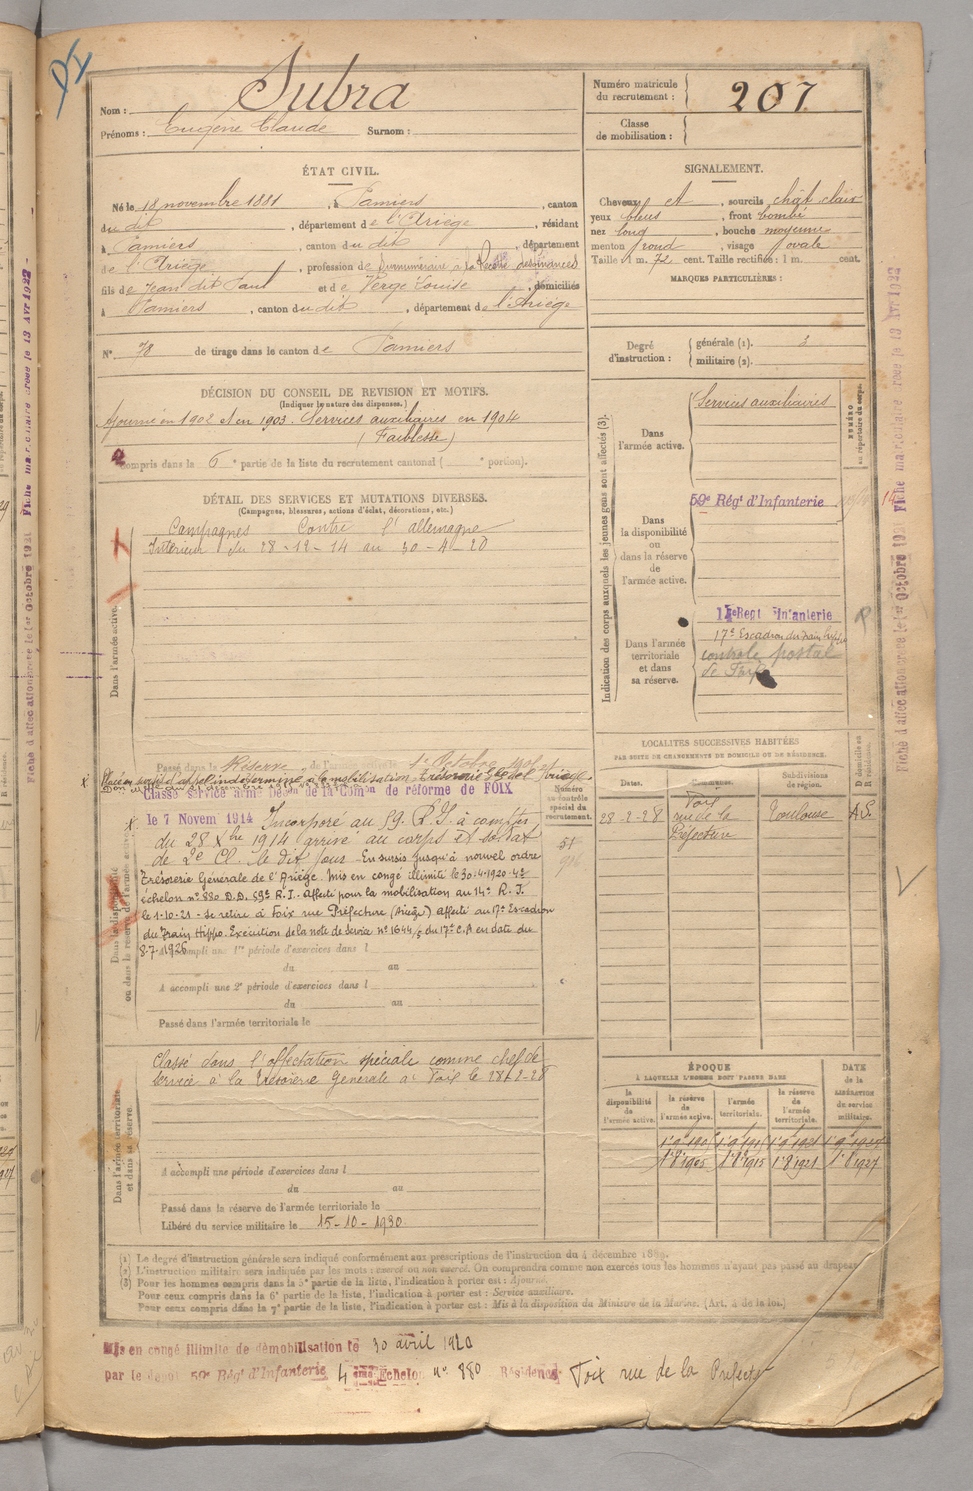 Nom : Subra
Prénoms : Eugène Claude Surnom :
Numéro matricule du recrutement : 207
Classe de mobilisation :
ÉTAT CIVIL.
Né le 18 novembre 1881, à Pamiers, canton
du dit, département de l'Ariège, résidant
à Pamiers, canton du dit, département
de l'Ariège, profession de Surnuméraire à la Recette des finances
fils de Jean dit Paul et de Verge Louise, domiciliés
à Pamiers, canton du dit, département de l'Ariège
N° 78 de tirage dans le canton de Pamiers
SIGNALEMENT.
Cheveux et, sourcils chât clair
yeux bleus, front bombé
nez long, bouche moyenne
menton rond, visage ovale
Taille 1 m. 72 cent. Taille rectifiée : 1 m. cent.
MARQUES PARTICULIÈRES :
Degré d'instruction : générale (1). 3
militaire (2).
DÉCISION DU CONSEIL DE REVISION ET MOTIFS.
(Indiquer la nature des dispenses.)
Ajourné en 1902 et en 1903. Services auxiliaires en 1904
(Faiblesse)
Compris dans la 6e partie de la liste du recrutement cantonal ( e portion).
DÉTAIL DES SERVICES ET MUTATIONS DIVERSES.
(Campagnes, blessures, actions d'éclat, décorations, etc.)
Campagnes Contre l'allemagne
Intérieur du 28-12-14 au 30-4-20
Dans l'armée active.
Indication des corps auxquels les jeunes gens sont affectés (3).
Dans l'armée active.
Services auxiliaires
Dans la disponibilité ou dans la réserve de l'armée active.
59e Régt d'Infanterie
Dans l'armée territoriale et dans sa réserve.
14e Regt d'Infanterie
17e Escadron du train hippo
contrôle postal
de Foix
Passé dans la Réserve de l'armée active le 1er Octobre 1905
Placé en sursis d'appel indéterminé à la mobilisation Trésorerie Gle de l'Ariège
Classé service armé
de la Comon de réforme de FOIX
le 7 Novem 1914 Incorporé au 59. R.I. à compter
du 28 Xbre 1914 arrivé au corps et soldat
de 2e Cl. le dit jour. En sursis jusqu'à nouvel ordre
Trésorerie Générale de l'Ariège. Mis en congé illimité le 30.4.1920 4e
échelon n° 880 D.D. 59e R.I. Affecté pour la mobilisation au 14e R.I.
le 1-10-21 - Se retire à Foix rue Préfecture (Ariège) affecté au 17e Escadron
du Train Hippo. Exécution de la note de Service n° 1644/5 du 17e C.A en date du
8-7-1926
A accompli une 1re période d'exercices dans l
du au
A accompli une 2e période d'exercices dans l
du au
Passé dans l'armée territoriale le
Dans la disponibilité ou dans la réserve de l'armée active.
Numéro au contrôle spécial du recrutement.
51
LOCALITÉS SUCCESSIVES HABITÉES
PAR SUITE DE CHANGEMENTS DE DOMICILE OU DE RÉSIDENCE.
Dates. Communes. Subdivisions de région. D domicile ou R résidence.
28-2-28 Foix rue de la Préfecture Toulouse A.S.
Classé dans l'affectation spéciale comme chef de
service à la Trésorerie Générale à Foix le 28-2-28
A accompli une période d'exercices dans l
du au
Passé dans la réserve de l'armée territoriale le
Libéré du service militaire le 15-10-1930
Dans l'armée territoriale et dans sa réserve.
ÉPOQUE
À LAQUELLE L'HOMME DOIT PASSER DANS
DATE de la LIBÉRATION du service militaire.
la disponibilité de l'armée active. la réserve de l'armée active. l'armée territoriale. la réserve de l'armée territoriale.
1.8.1905 1.8.1915 1.8.1921 1.8.1927
(1) Le degré d'instruction générale sera indiqué conformément aux prescriptions de l'instruction du 4 décembre 1889.
(2) L'instruction militaire sera indiquée par les mots : exercé ou non exercé. On comprendra comme non exercés tous les hommes n'ayant pas passé au drapeau
(3) Pour les hommes compris dans la 5e partie de la liste, l'indication à porter est : Ajourné.
Pour ceux compris dans la 6e partie de la liste, l'indication à porter est : Service auxiliaire.
Pour ceux compris dans la 7e partie de la liste, l'indication à porter est : Mis à la disposition du Ministre de la Marine. (Art. 4 de la loi.)
Mis en congé illimité de démobilisation le 30 avril 1920
par le dépôt 59e Régt d'Infanterie 4ème Echelon n° 880 Résidence Foix rue de la Prefecture